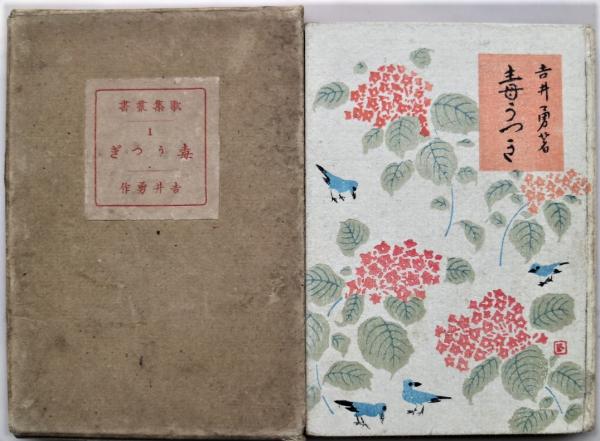 歌集叢書
1
毒うつぎ
吉井勇作
吉井勇著
毒うつき